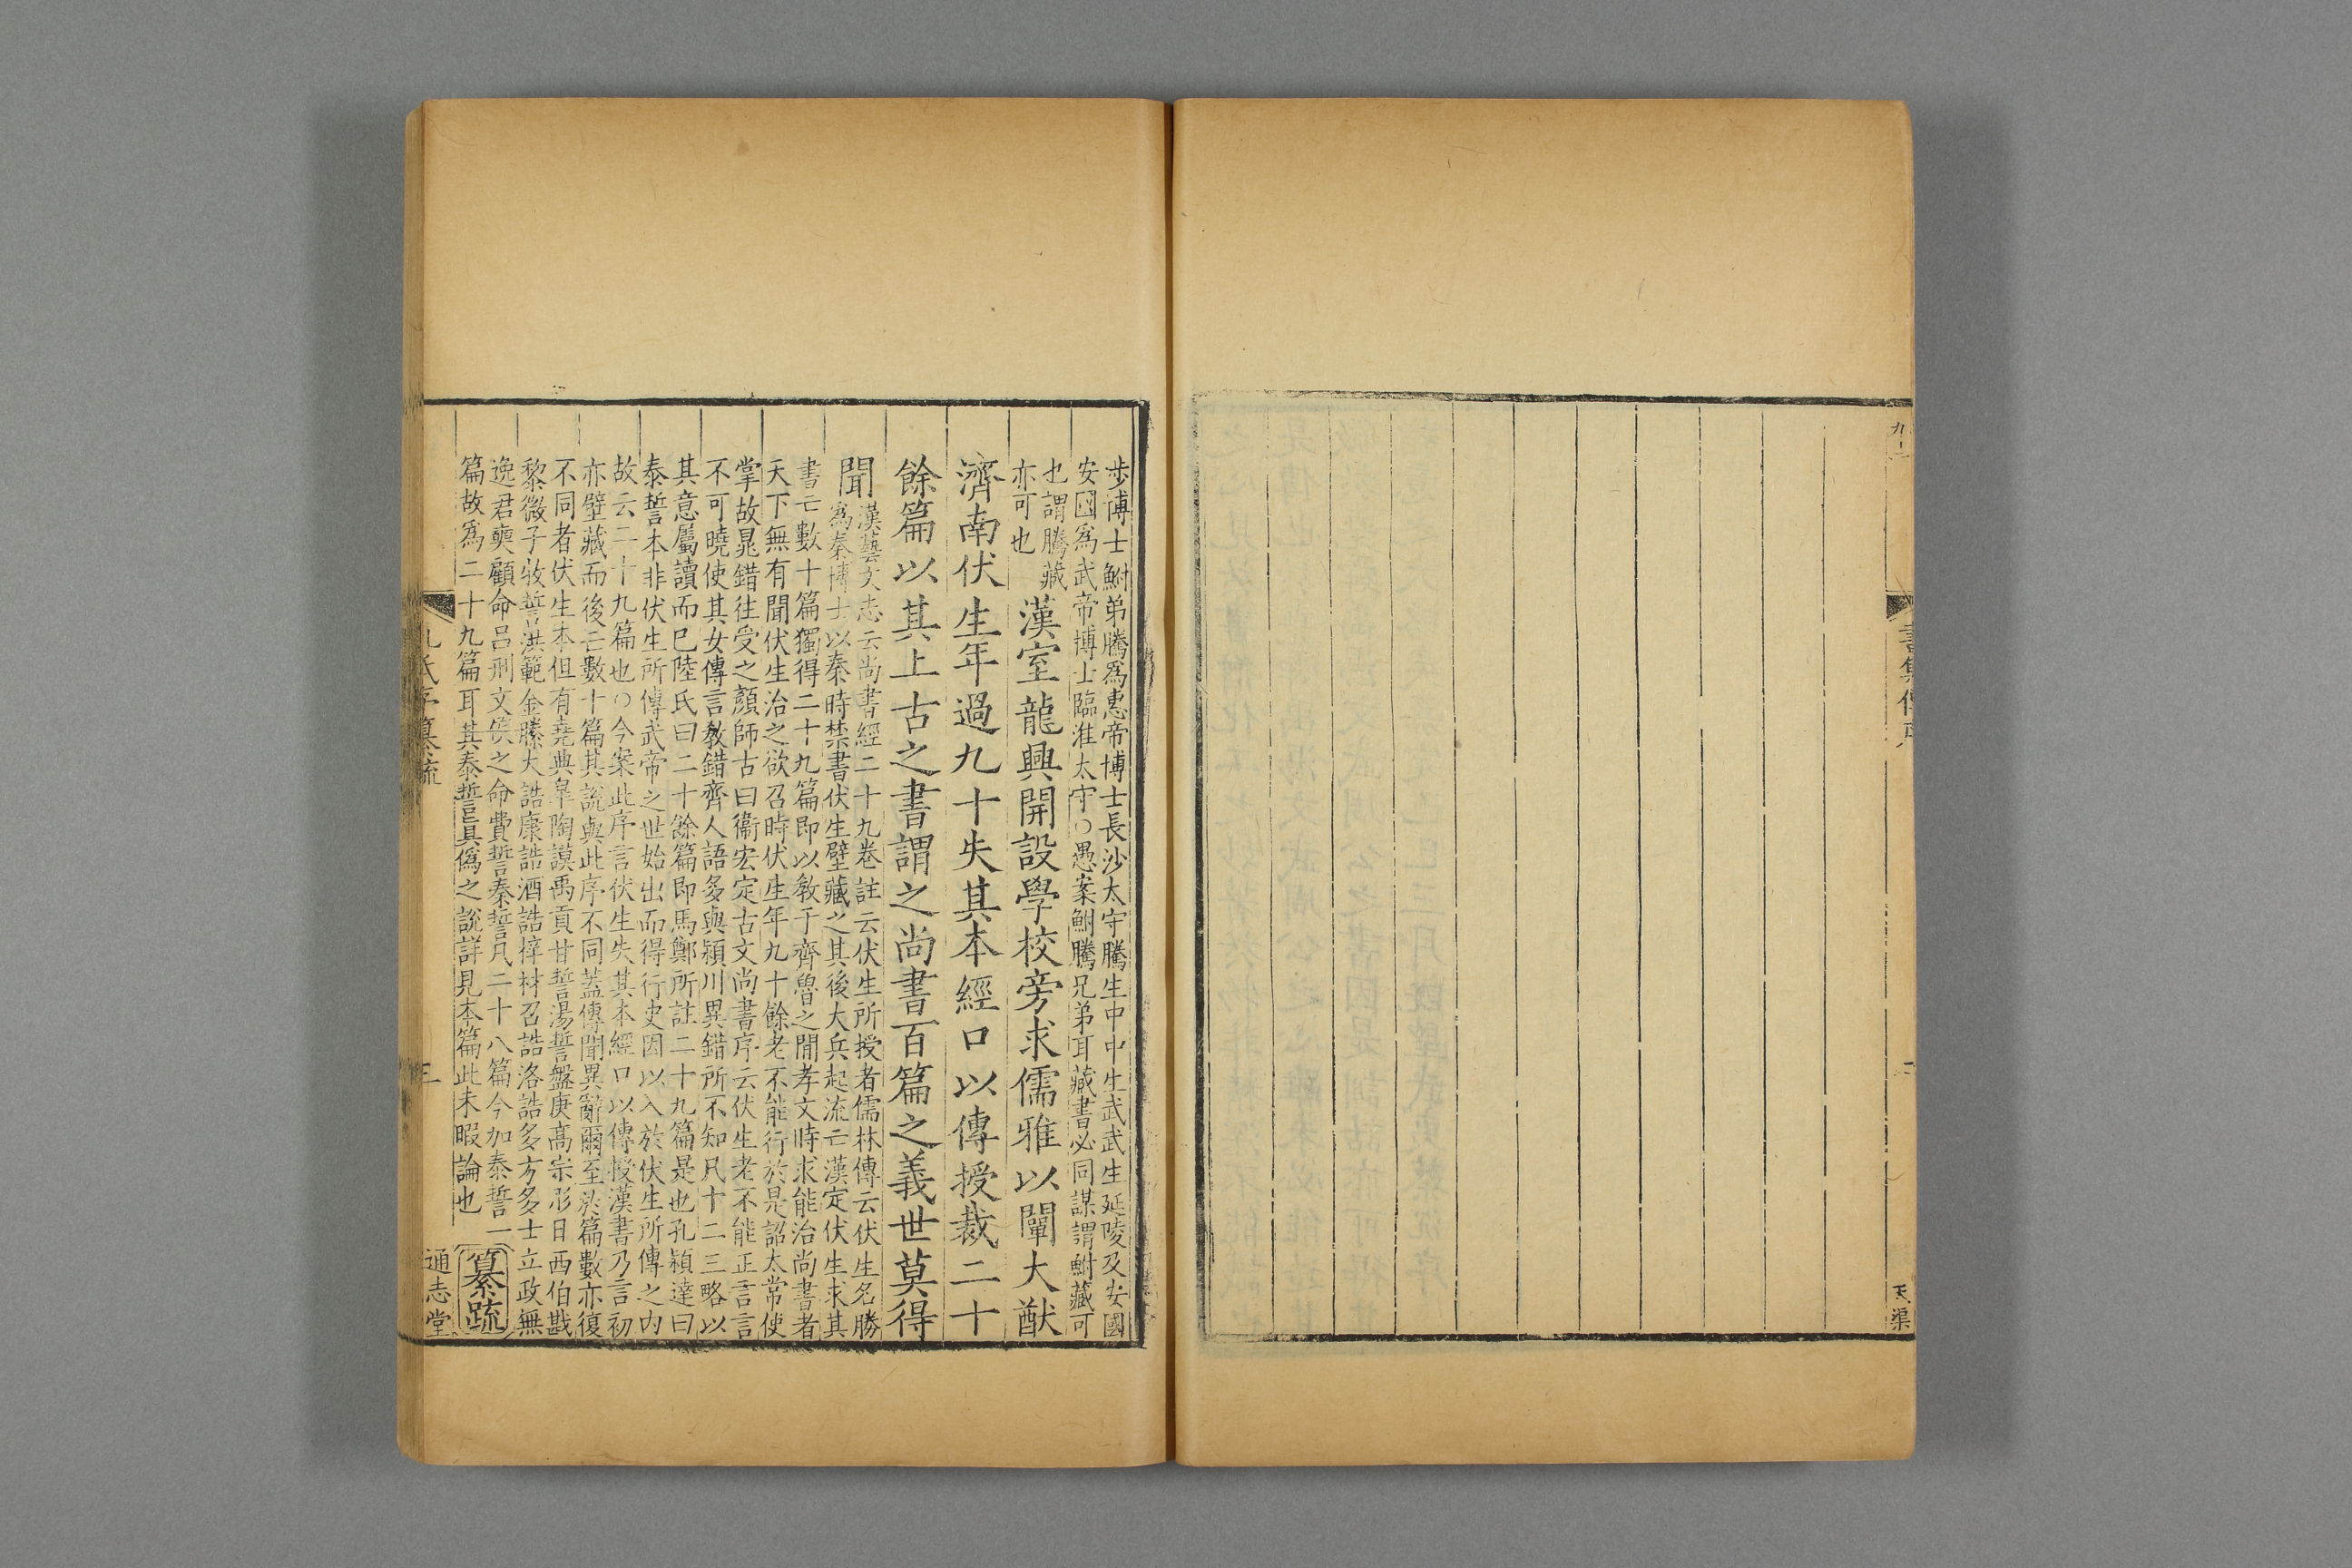 書集傳
天渠
步博士鮒弟騰爲惠帝博士長沙太守騰生中中生武武生延陵及安國
安國爲武帝博士臨淮太守○愚案鮒騰兄弟耳藏書必同謀謂鮒藏可
也謂騰藏
亦可也
漢室龍興開設學校旁求儒雅以闡大猷
濟南伏生年過九十失其本經口以傳授裁二十
餘篇以其上古之書謂之尚書百篇之義世莫得
聞
漢藝文志云尚書經二十九卷註云伏生所授者儒林傳云伏生名勝
爲秦博士以秦時禁書伏生壁藏之其後大兵起流亡漢定伏生求其
書亡數十篇獨得二十九篇即以敎于齊魯之間孝文時求能治尚書者
天下無有聞伏生治之欲召時伏生年九十餘老不能行於是詔太常使
掌故晁錯往受之顏師古曰衞宏定古文尚書序云伏生老不能正言言
不可曉使其女傳言敎錯齊人語多與潁川異錯所不知凡十二三略以
其意屬讀而已陸氏曰二十餘篇即馬鄭所註二十九篇是也孔穎達曰
泰誓本非伏生所傳武帝之世始出而得行史因以入於伏生所傳之內
故云二十九篇也○今案此序言伏生失其本經口以傳授漢書乃言初
亦壁藏而後亡數十篇其說與此序不同蓋傳聞異辭爾至於篇數亦復
不同者伏生本但有堯典皐陶謨禹貢甘誓湯誓盤庚高宗肜日西伯戡
黎微子牧誓洪範金縢大誥康誥酒誥梓材召誥洛誥多方多士立政無
逸君奭顧命呂刑文侯之命費誓秦誓凡二十八篇今加泰誓一
篇故爲二十九篇耳其泰誓眞僞之說詳見本篇此未暇論也
纂疏
孔氏序纂疏
三
通志堂